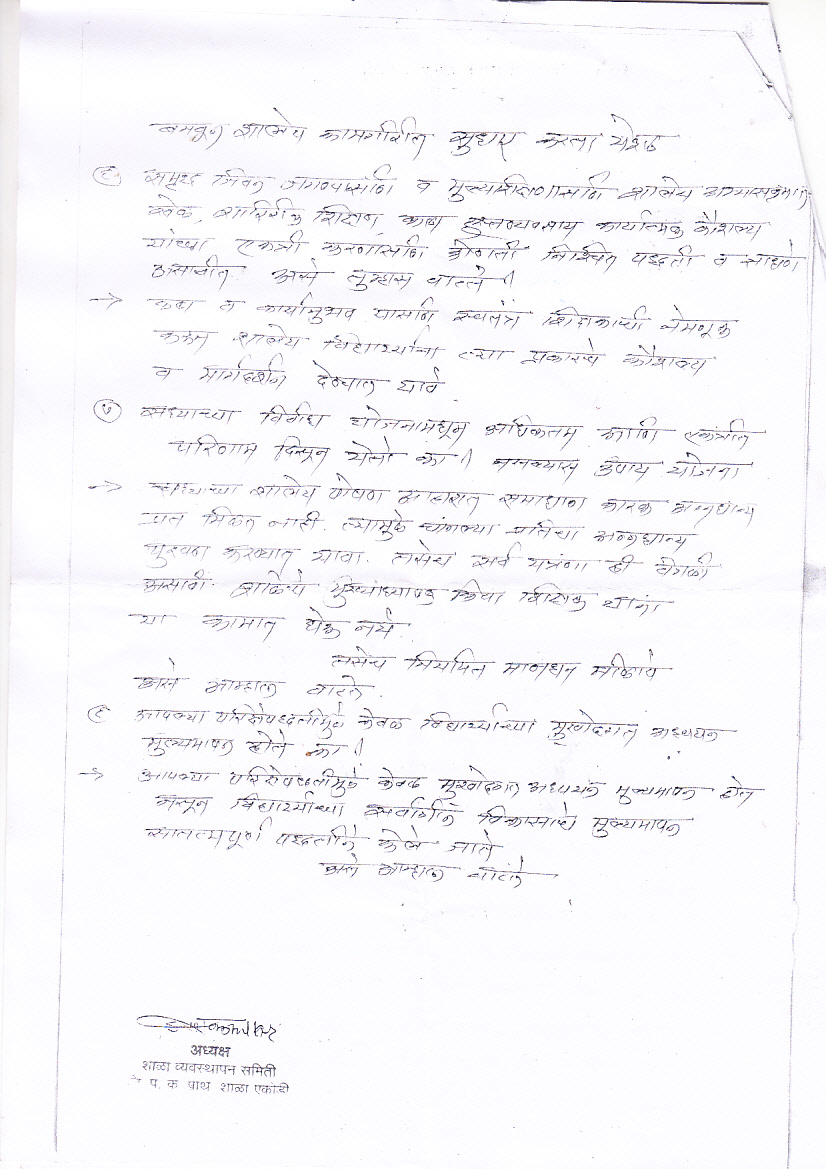 बनवून शालेय कामगिरीत सुधार करता येईल
६) समृद्ध जिवन जगण्यासाठी व मुल्यशिक्षणासाठी शालेय अभ्यासक्रमात
खेळ, शारिरीक शिक्षण, कला हस्तव्यवसाय कार्यात्मक कौशल्य
यांच्या एकत्री करणासाठी कोणती निश्चित पद्धती व साधणे
असावीत असे तुम्हास वाटते ?
→ कला व कार्यानुभव यासाठी स्वतंत्र शिक्षकाची नेमणूक
करून शालेय विद्यार्थ्यांना त्या प्रकारचे कौशल्य
व मार्गदर्शन देण्यात यावे
७) सध्याच्या विविध योजनामधून अधिकतम आणि एकत्रीत
परिणाम दिसून येतो का ? नसल्यास उपाय योजना
→ सध्याच्या शालेय पोषण आहारात समाधान कारक अन्नधान्य
प्राप्त मिळत नाही. त्यामुळे चांगल्या प्रतिचा अन्नधान्य
पुरवठा करण्यात यावा. तसेच सर्व यंत्रणा ही वेगळी
असावी. शाळेचे मुख्याध्यापक किंवा शिक्षक यांना
या कामात घेऊ नये.
तसेच नियमित मानधन मिळावे
असे आम्हाला वाटते.
८) आपल्या परिक्षेपद्धतीमुळे केवळ विद्यार्थ्यांच्या मुखोद्गत अध्ययन
मुल्यमापन होते का ?
→ आपल्या परिक्षेपद्धतीमुळे केवळ मुखोद्गत अध्ययन मुल्यमापन होत
नसून विद्यार्थ्यांच्या सर्वांगीन विकासाचे मुल्यमापन
सातत्यपूर्ण पद्धतीने केले जाते
असे आम्हाला वाटते
अध्यक्ष
शाळा व्यवस्थापन समिती
प. क प्राथ शाळा एकोडी